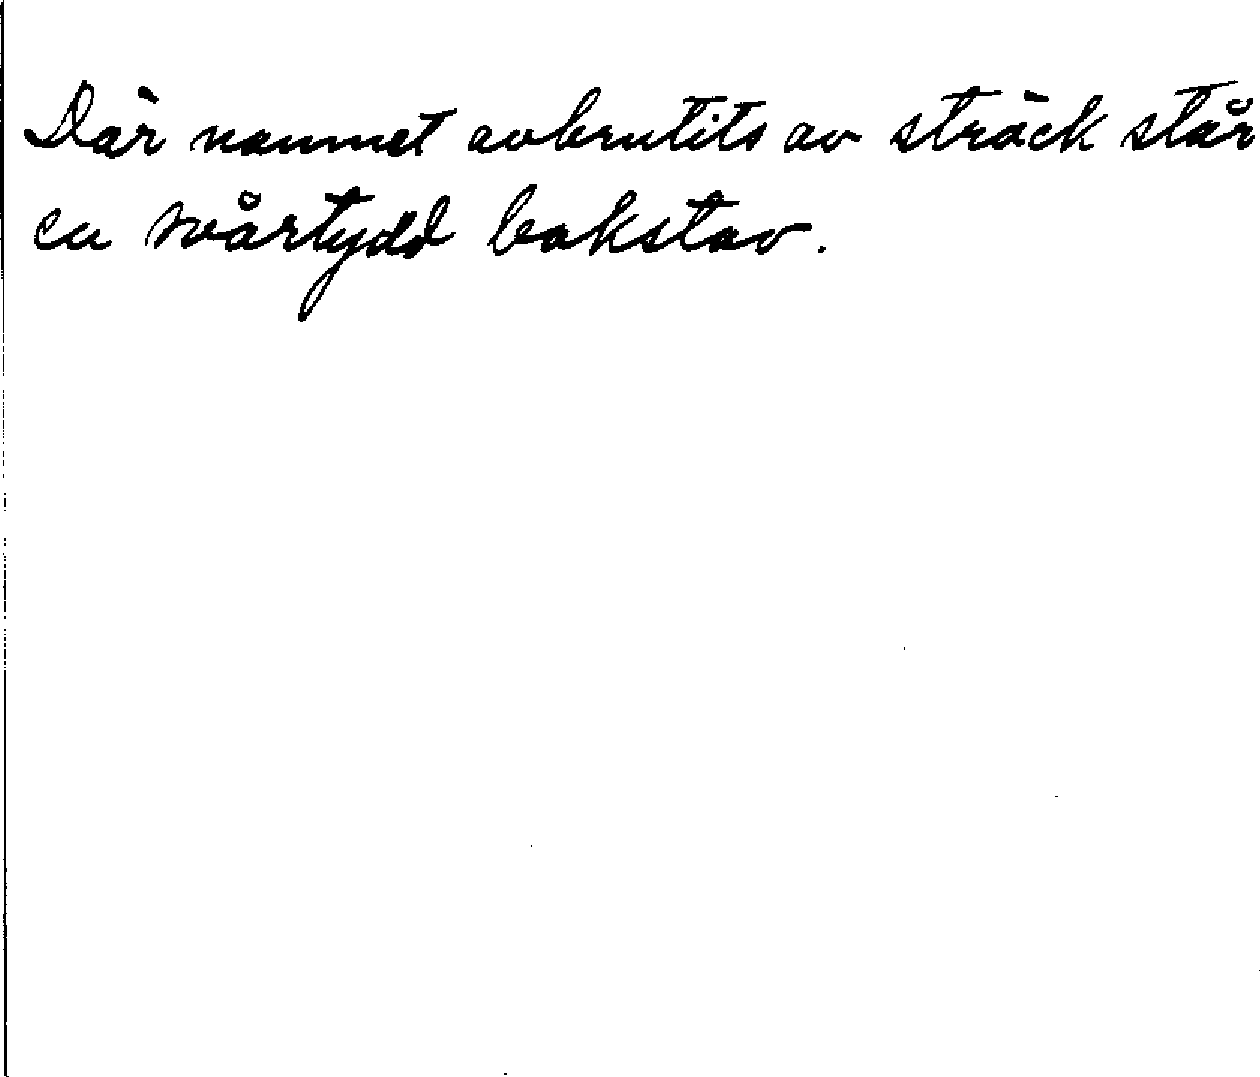 Där namnet avbrutits av sträck står
en svårtydd bokstav.